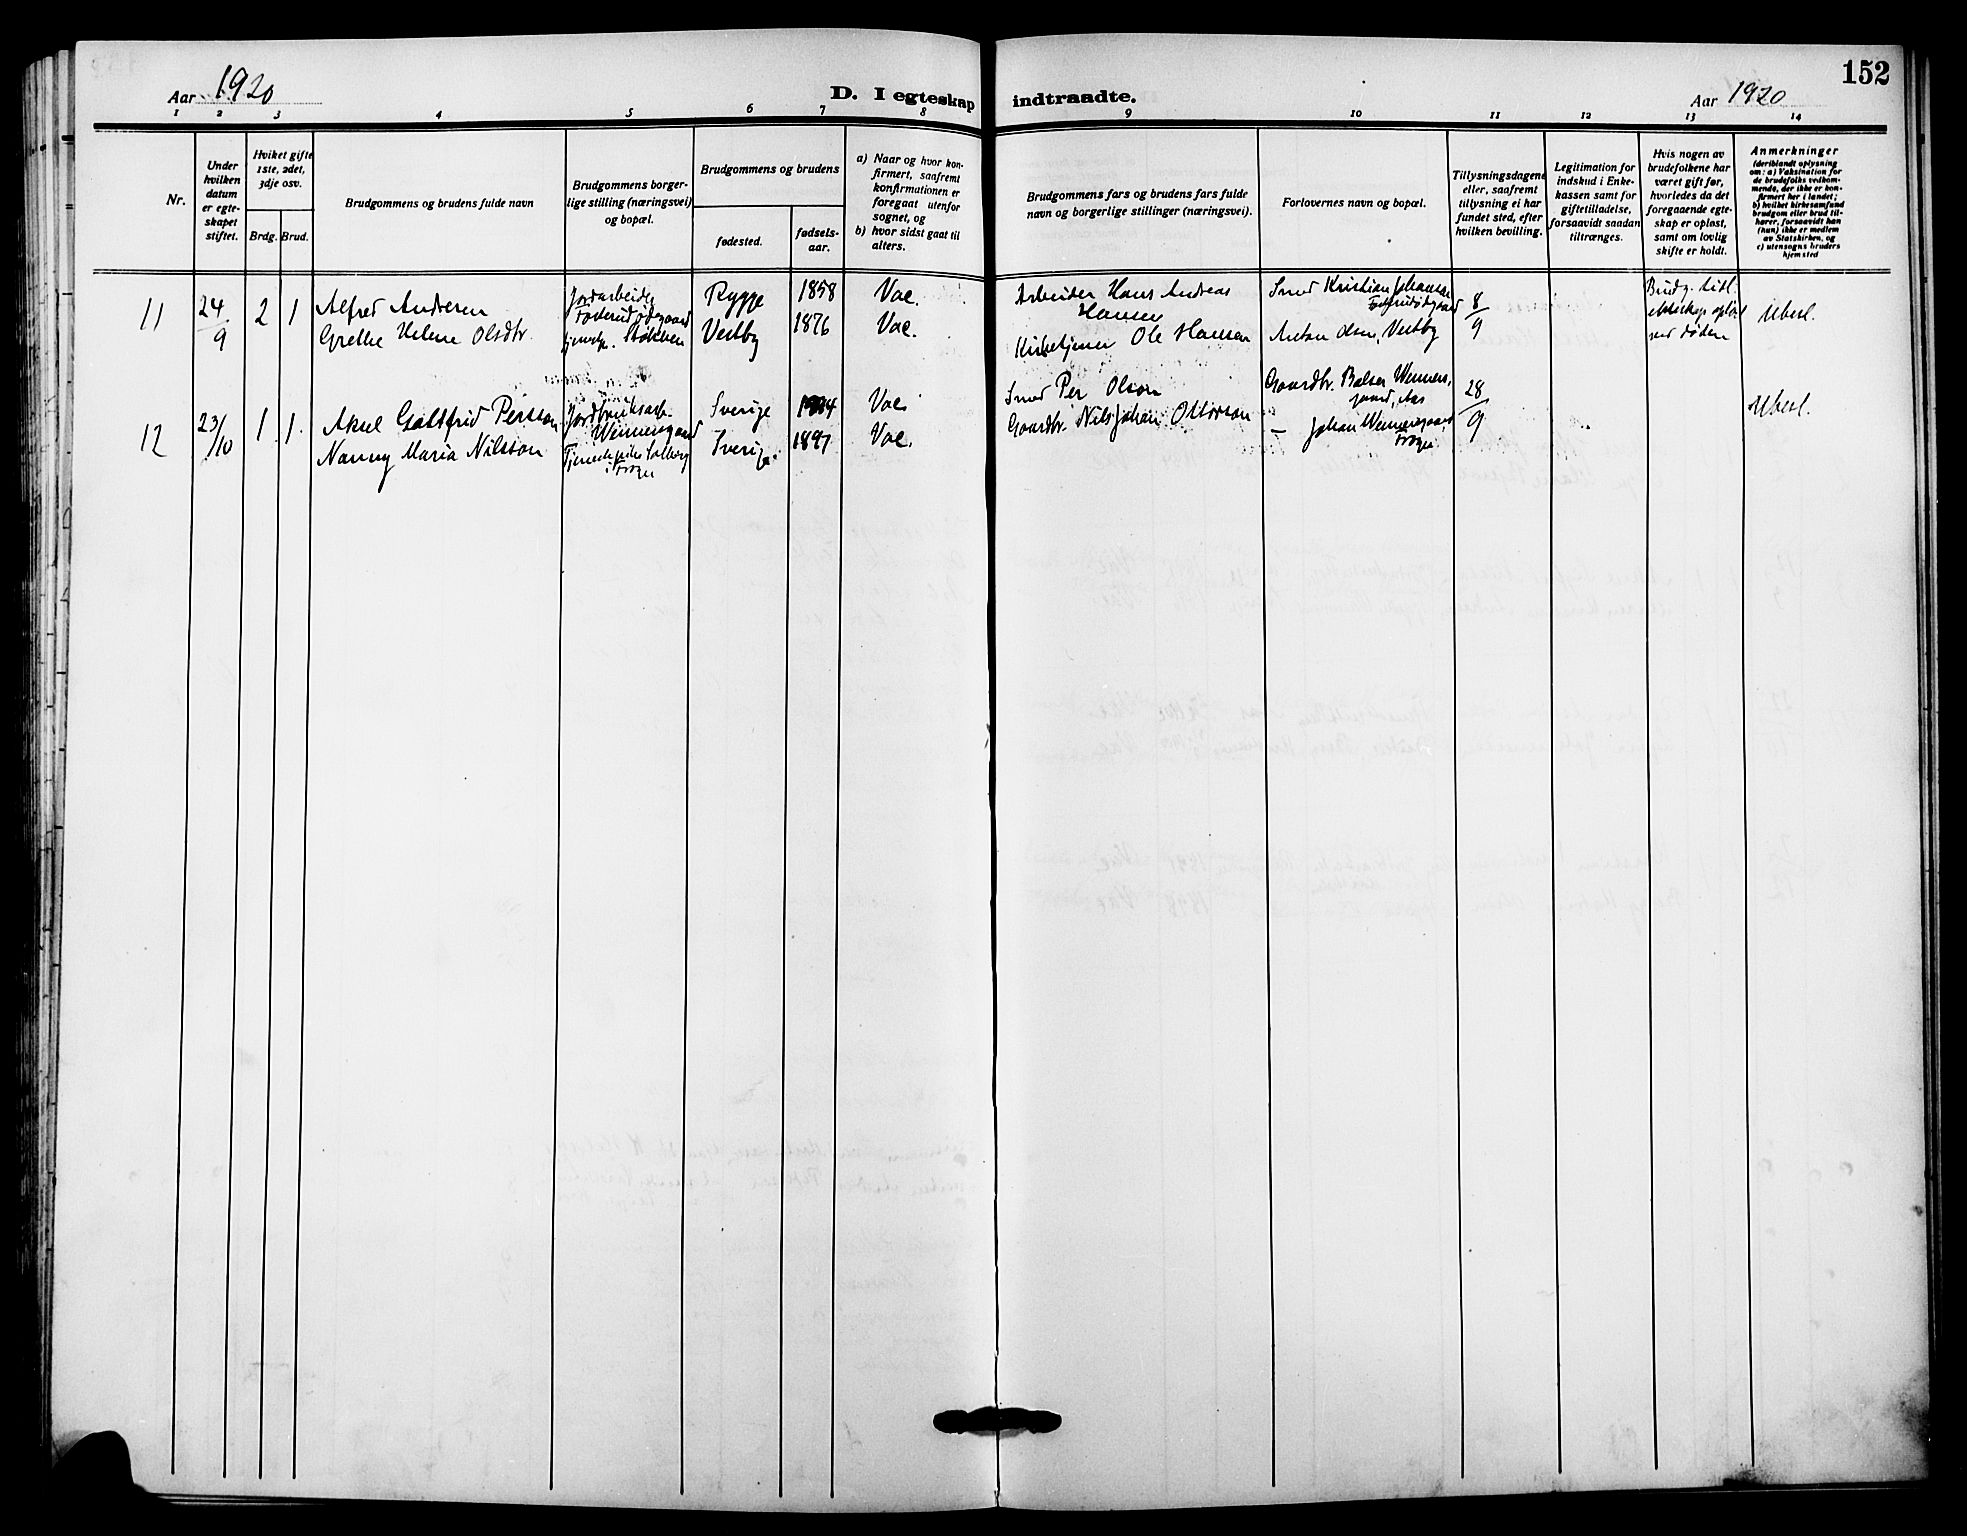 152
Aar 1920
D. I egteskap indtraadte.
Aar 1920
1 2 3 4 5 6 7 8 9 10 11 12 13 14
Nr.
Under hvilken datum er egte-skapet stiftet.
Hviket gifte 1ste, 2det, 3dje osv.
Brdg. Brud.
Brudgommens og brudens fulde navn
Brudgommens borger-lige stilling (næringsvei) og bopæl.
Brudgommens og brudens
fødested.
fødsels-aar.
a) Naar og hvor kon-firmert, saafremt konfirmationen er foregaat utenfor sognet, og
b) hvor sidst gaat til alters.
Brudgommens fars og brudens fars fulde navn og borgerlige stillinger (næringsvei).
Forlovernes navn og bopæl.
Tillysningsdagene eller, saafremt tillysning ei har fundet sted, efter hvilken bevilling.
Legitimation for indskud i Enke-kassen samt for giftetilladelse, forsaavidt saadan tiltrænges.
Hvis nogen av brudefolkene har været gift før, hvorledes da det foregaaende egte-skap er opløst, samt om lovlig skifte er holdt.
Anmerkninger
(deriblandt oplysning om: a) Vaksination for de brudefolks vedkom-mende, der ikke er kon-firmert her i landet; b) hvilket kirkesamfund brudgom eller brud til-hører, forsaavidt han (hun) ikke er medlem av Statskirken, og c) utensogns bruders hjemsted
11 24/9 2 1 Alfred Andersen Jordarbeider Rygge 1858 Vac. Arbeider Hans Andreas Hansen Smed Kristian Johansen 8/9
Grethe Helene Olsdtr. Vestby 1876 Vac. Kirketjener Ole Hansen Anton Olsen, Vestby
Brudg. tidl. ekteskap opløst ved døden
Uberl.
12 23/10 1 1 Aksel Gottfrid Persson Jordbruksarb. Sverige Vac. Smed Per Olson Gaardbr. 28/9
Nanny Maria Nilsson Sverige. 1897 Vac. Gaardbr. Nils Johan Ottosson – Johan
Uberl.